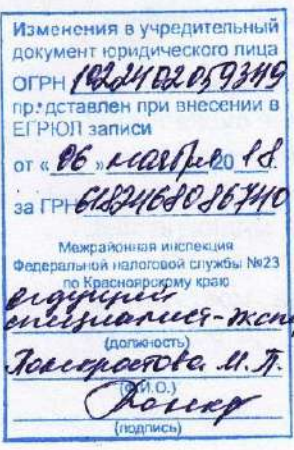 Изменения в учредительный
документ юридического лица
ОГРН 1022402059349
представлен при внесении в
ЕГРЮЛ записи
от « 06 » ноября 20 18
за ГРН 6182468086740
Межрайонная инспекция
Федеральной налоговой службы №23
по Красноярскому краю
ведущий
специалист-эксп
(должность)
М. П.
(Ф.И.О.)
(подпись)